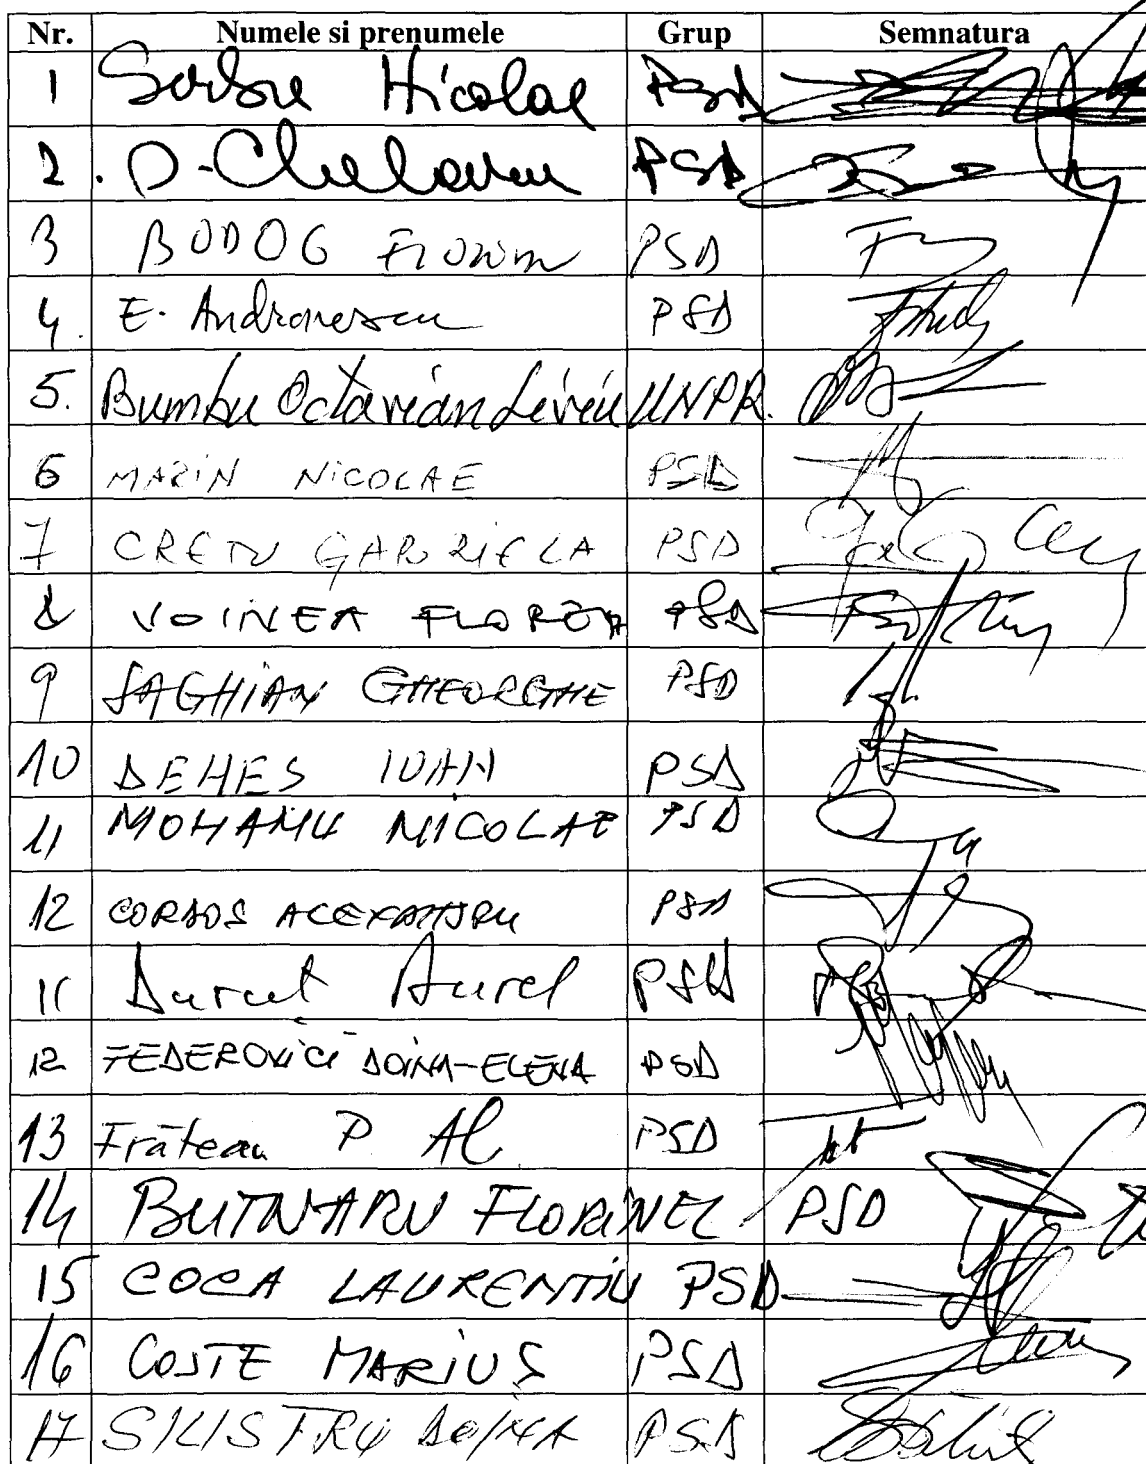 Nr. Numele si prenumele Grup Semnatura
1 Nicolae PSD
2. D. Chelaru PSD
3 BODOG FLORIAN PSD
4. E. Andronescu PSD
5. Bumbu Octavian Liviu UNPR.
6 MARIN NICOLAE PSD
7 CRETU GABRIELA PSD
8 VOINEA FLOREA PSD
9 SAGHIAN GHEORGHE PSD
10 DENES IOAN PSD
11 MOHANU NICOLAE PSD
12 CORDOS ALEXANDRU PSD
11 Durut Aurel PSD
12 FEDEROVICI DOINA-ELENA PSD
13 Frăteau P. Al. PSD
14 BUTNARU FLORINEL PSD
15 COCA LAURENTIU PSD
16 COSTE MARIUS PSD
17 SILISTRU DOINA PSD